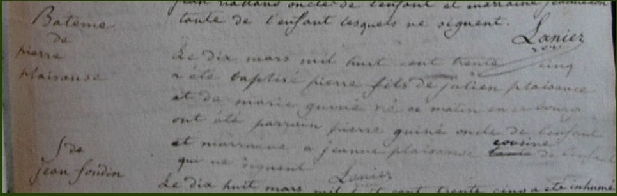 oncle de l'enfant et marraine
tante de l'enfant lesquels ne signent.
Lanier
Bateme
de
pierre
plaisanse
Le dix mars mil huit cent trente cinq
a été baptisé pierre fils de julien plaisance
et de marie guiné né ce matin en ce bourg
ont été parrain pierre guiné oncle de l'enfant
et marraine jeannne plaisanse cousine de l'enfant
qui ne signent Lanier
S de
jean foudin
Le dix huit mars mil huit cent trente cinq a été inhumé